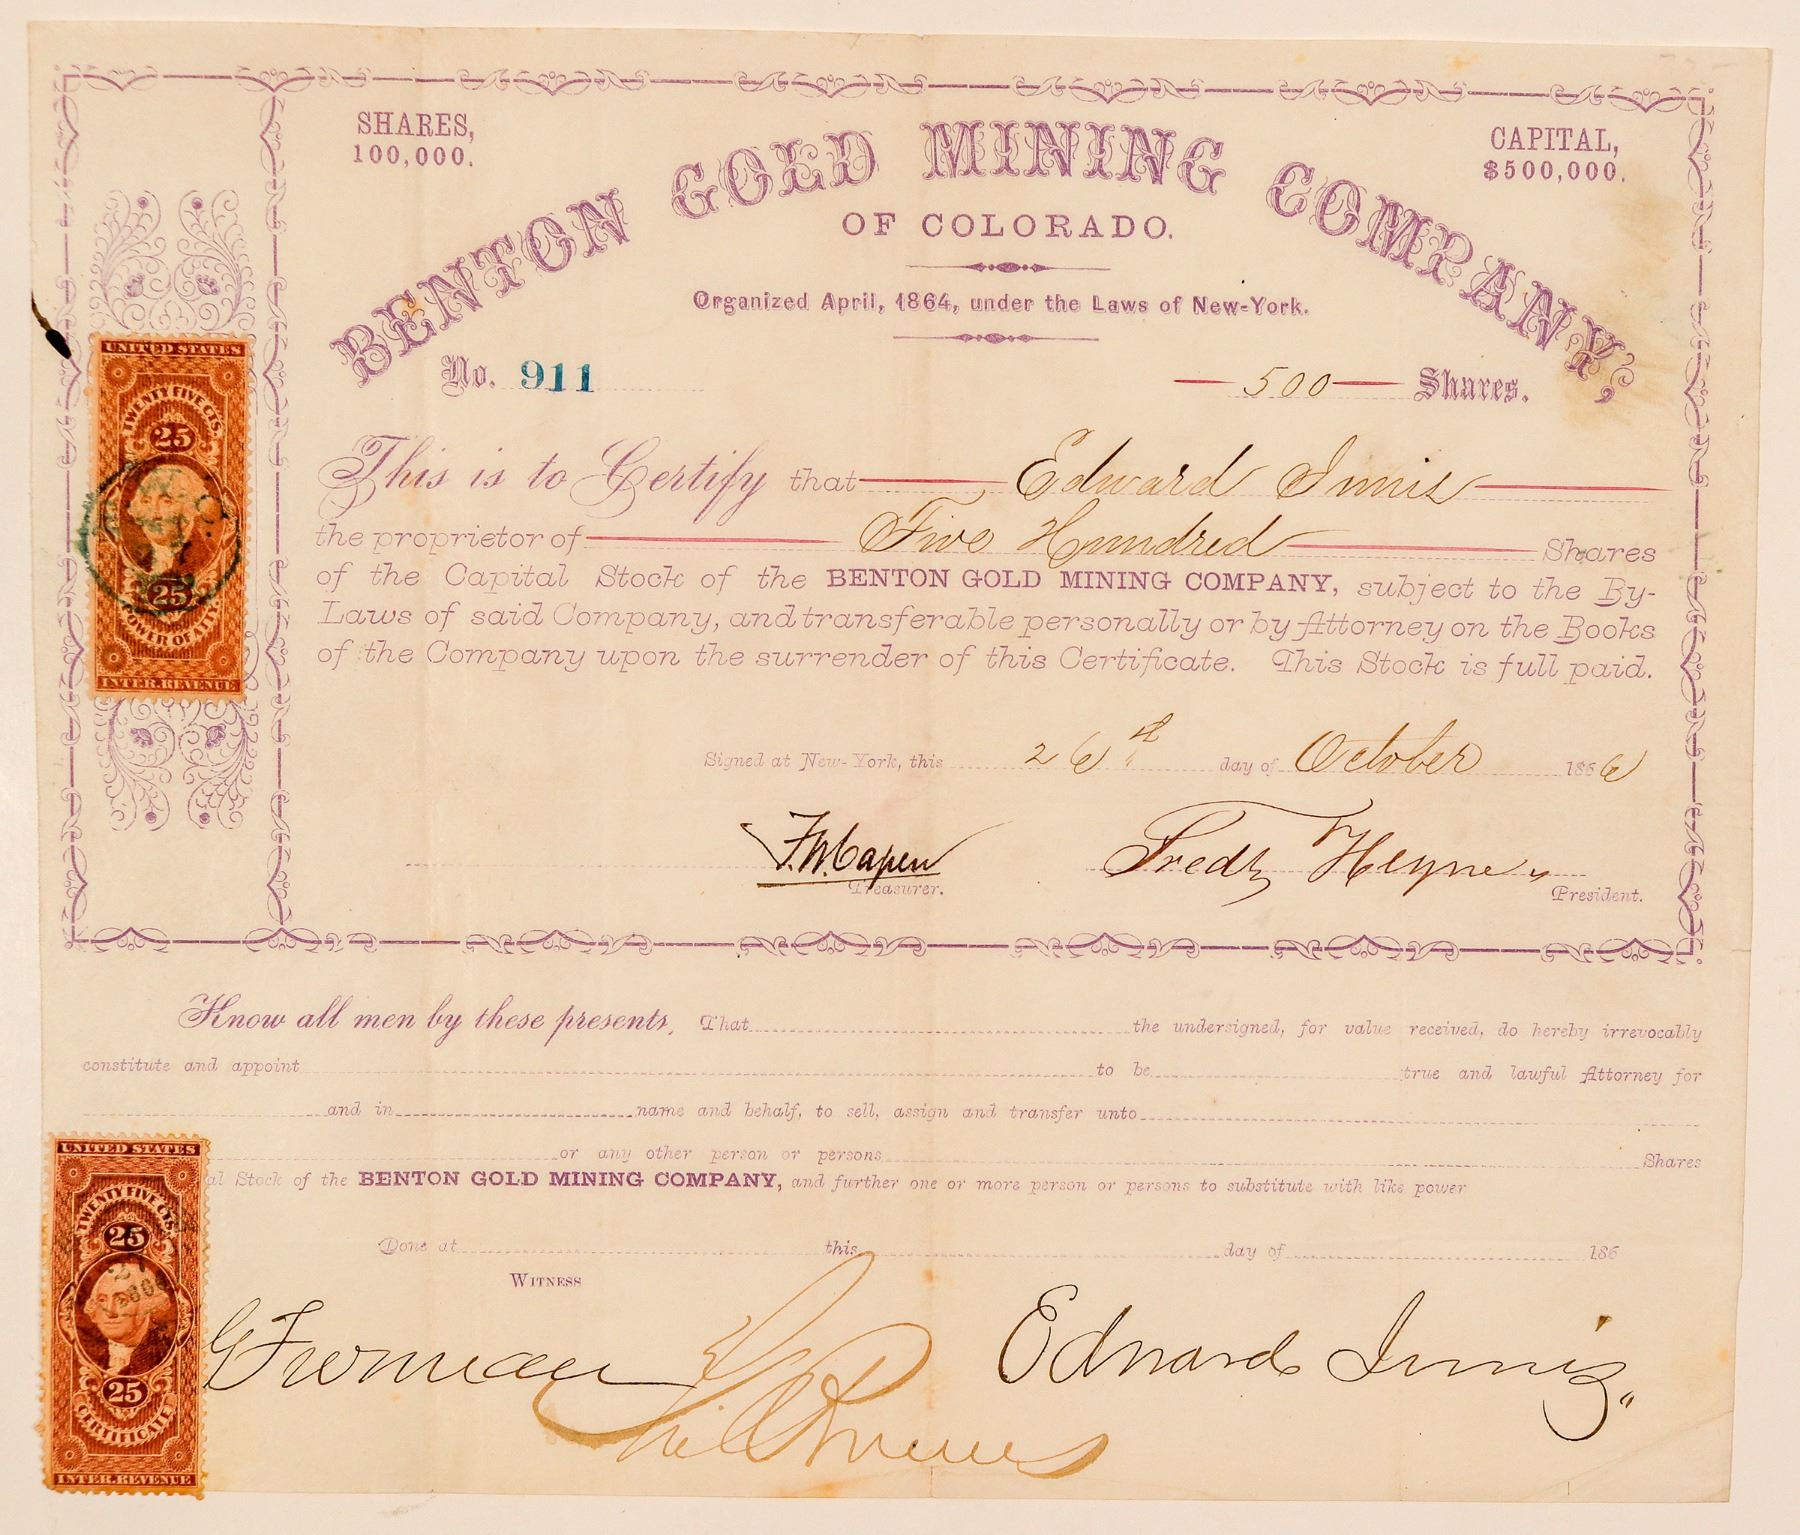 SHARES,
100,000.
CAPITAL,
$500,000.
BENTON GOLD MINING COMPANY,
OF COLORADO.
Organized April, 1864, under the Laws of New-York.
No. 911
500 Shares.
This is to Certify that Edward Innis
the proprietor of Five Hundred Shares
of the Capital Stock of the BENTON GOLD MINING COMPANY, subject to the By-
Laws of said Company, and transferable personally or by Attorney on the Books
of the Company upon the surrender of this Certificate. This Stock is full paid.
Signed at New-York, this 26th day of October 1866
F. W. Capen
Treasurer.
Fredk Heyne
President.
UNITED STATES
TWENTY FIVE CTS.
25
25
POWER OF ATT'Y
INTER. REVENUE
Know all men by these presents, That the undersigned, for value received, do hereby irrevocably
constitute and appoint to be true and lawful Attorney for
and in name and behalf, to sell, assign and transfer unto
or any other person or persons Shares
al Stock of the BENTON GOLD MINING COMPANY, and further one or more person or persons to substitute with like power
Done at this day of 186
WITNESS
Edward Innis
UNITED STATES
TWENTY FIVE CTS.
25
25
CERTIFICATE
INTER. REVENUE